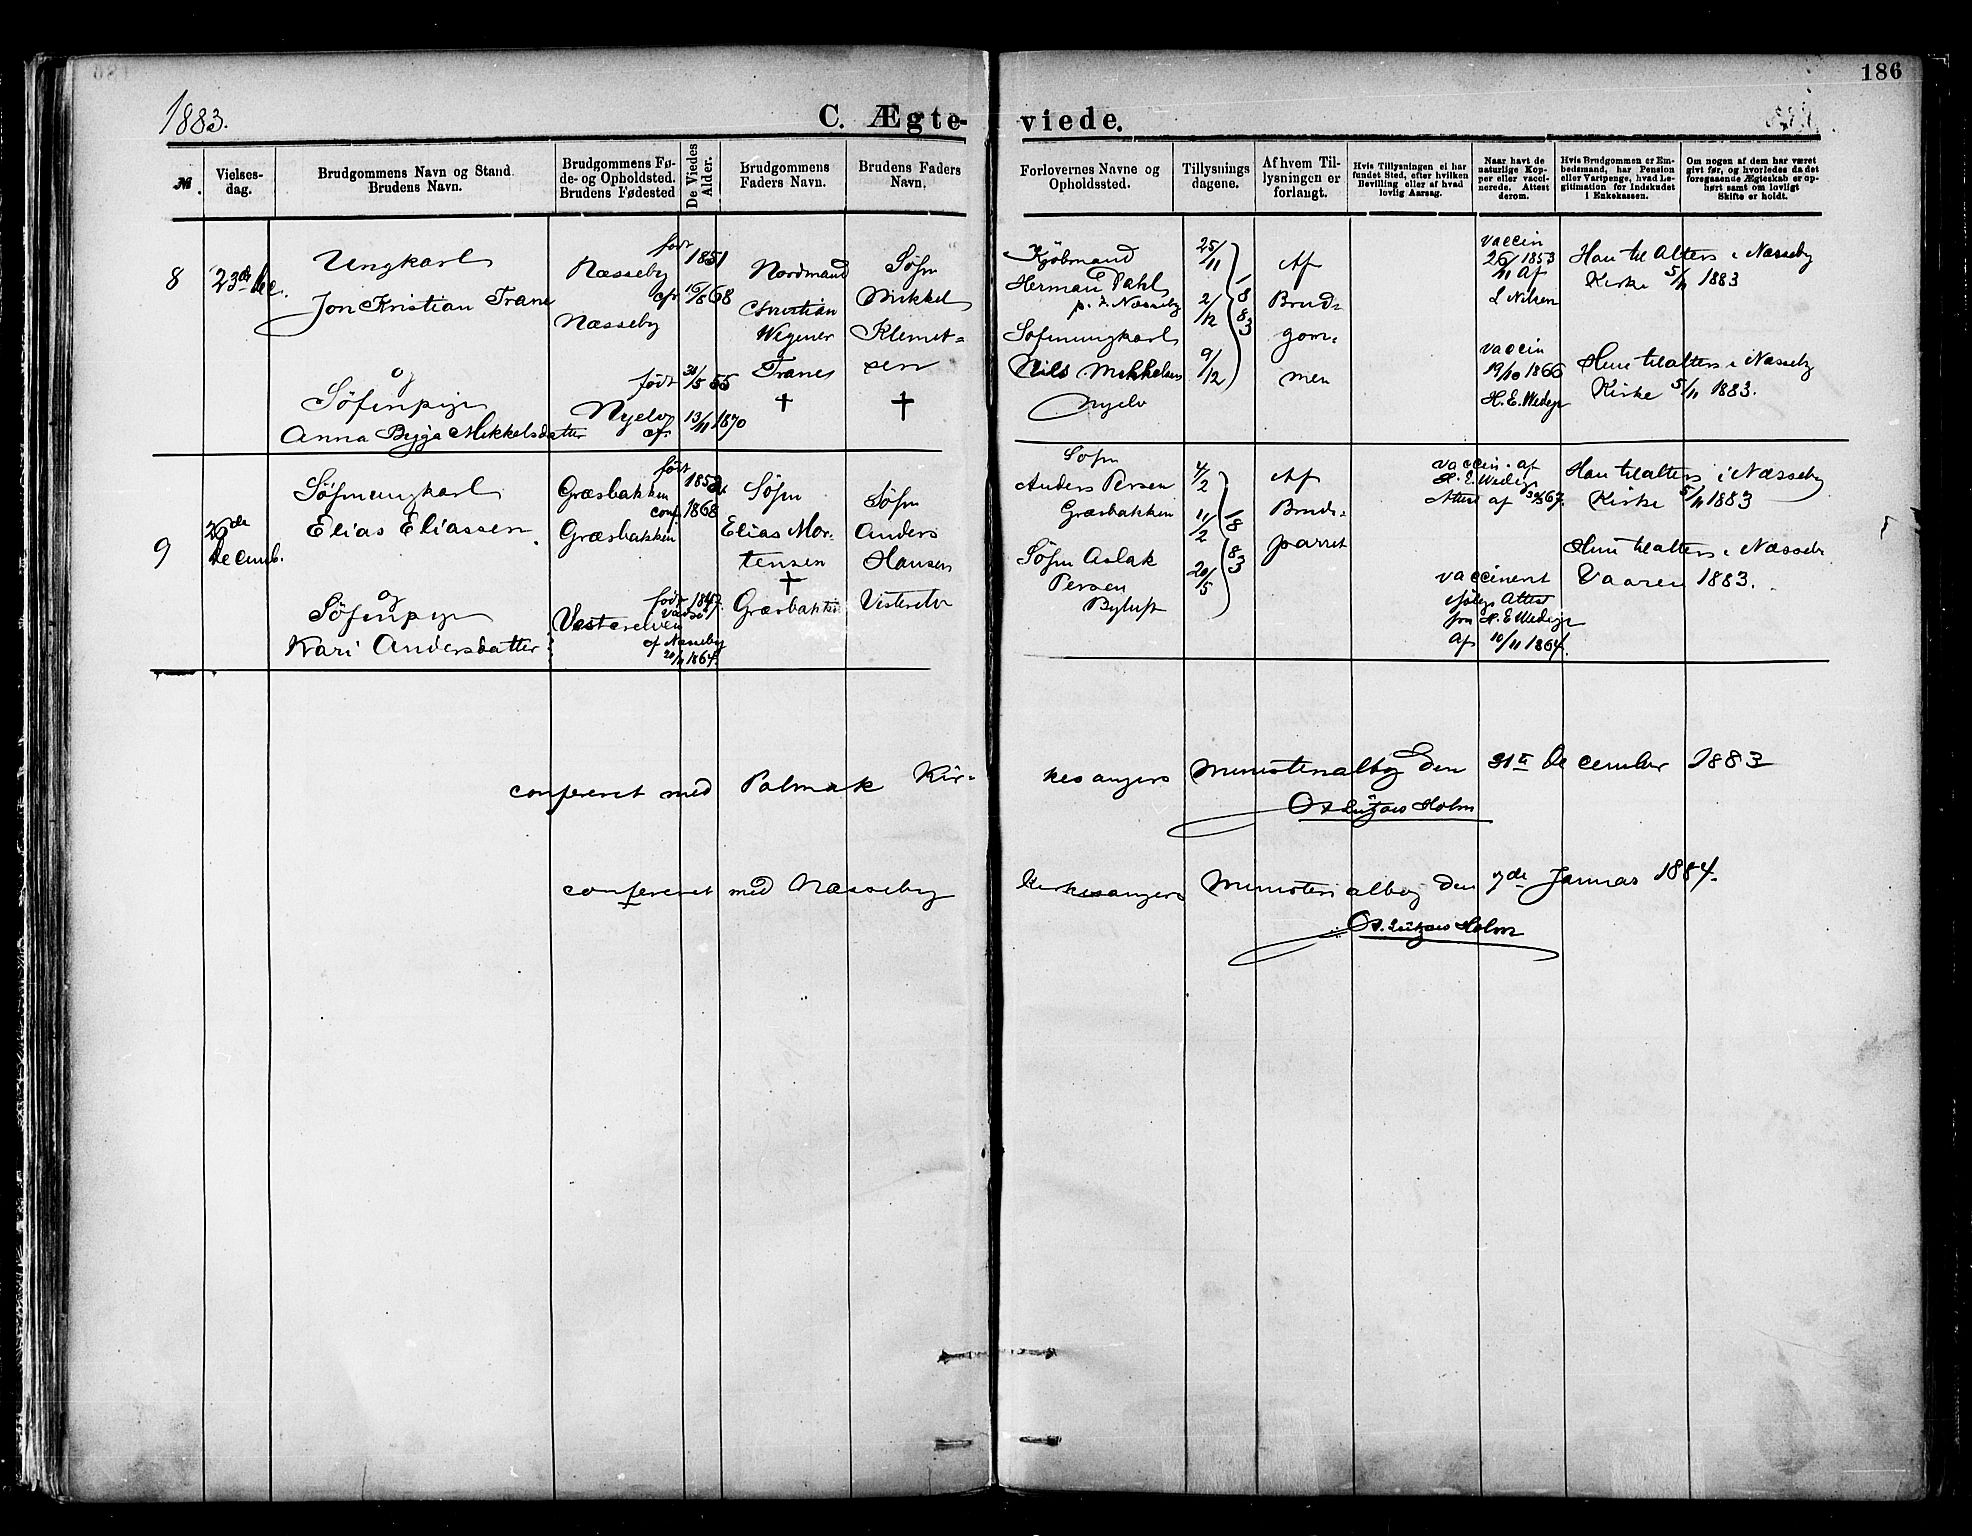 186
1883.
C. Ægte-
viede.
№.
Vielses-
dag.
Brudgommens Navn og Stand.
Brudens Navn.
Brudgommens Fø-
de- og Opholdsted.
Brudens Fødested
De Viedes
Alder.
Brudgommens
Faders Navn.
Brudens Faders
Navn.
Forlovernes Navne og
Opholdssted.
Tillysnings
dagene.
Af hvem Til-
lysningen er
forlangt.
Hvis Tillysningen ei har
fundet Sted, efter hvilken
Bevilling eller af hvad
lovlig Aarsag.
Naar havt de
naturlige Kop-
per eller vacci-
nerede. Attest
derom.
Hvis Brudgommen er Em-
bedsmand, har Pension
eller Vartpenge, hvad Le-
gitimation for Indskudet
i Enkekassen.
Om nogen af dem har været
givt før, og hvorledes da det
foregaaende Ægteskab er op-
hørt samt om lovligt
Skifte er holdt.
8
23de Dec.
Ungkarl
Jon Kristian Trane
og
Søfinpige
Anna Bigga Mikkelsdatter
født
Næsseby
cfr
Næsseby
født
Nyelv
cf.
1851
16/8 68
30/5 55
13/11 1870
Nordmand
Christian
Wegener
Tranes
†
Søfin
Mikkel
Klemet-
sen
†
Kjøbmand
Herman Dahl
p. t. Næsseby
Søfinungkarl
Nils Mikkelsen
Nyelv
25/11
2/12
9/12
1883
Af
Brud-
gom-
men
vaccin
26/11 1853
af
L Nilsen
vaccin
19/10 1866
H. E. Wedege
Han til Alters i Næsseby
Kirke 5/11 1883
Hun til alters i Næsseby
Kirke 5/11 1883.
9
26de
Decemb.
Søfinungkarl
Elias Eliassen
og
Søfinpige
Kari Andersdatter
født
Græsbakken
conf.
Græsbakken
født
Vesterelven
af Næsseby
20/11 1864.
1868
Søfin
Elias Mor-
tensen
†
Græsbakken
Søfin
Anders
Hansen
Vesterelv
Søfin
Anders Persen
Græsbakken
Søfin Aslak
Persen
Byluft
4/2
11/2
20/5
1883
Af
Brude-
parret
vaccin. af
H. E. Wedege
Attest af
vaccineret
ifølge Attest
fra H. E Wedege
af 10/11 1864.
Han til alters i Næsseby
Kirke 5/11 1883
Hun til alters i Næsseby
Vaaren 1883.
confereret med Polmak Kir-
kesangers Ministerialbog den 31te December 1883
O. A. Lützow Holm
confereret med Næsseby
Kirkesangers Ministerialbog den 7de Januar 1884.
O. A. Lützow Holm